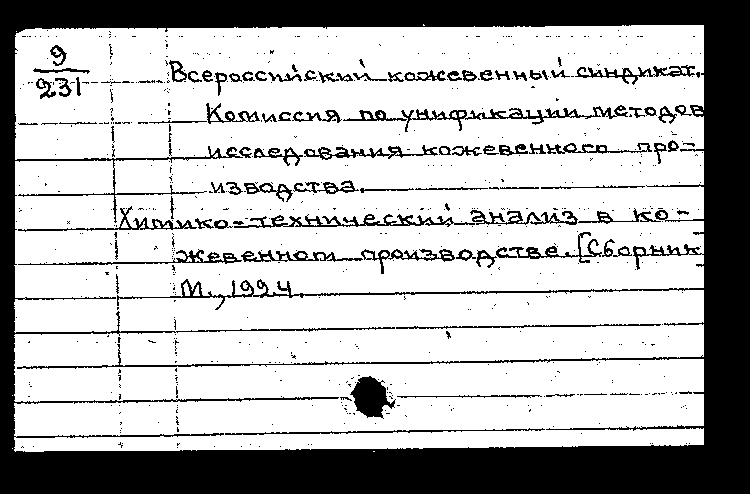 9
231
Всероссийский кожевенный синдикат.
Комиссия по унификации методов
исследования кожевенного про-
изводства.
Химико-технический анализ в ко-
жевенном производстве. [Сборник
М., 1924.